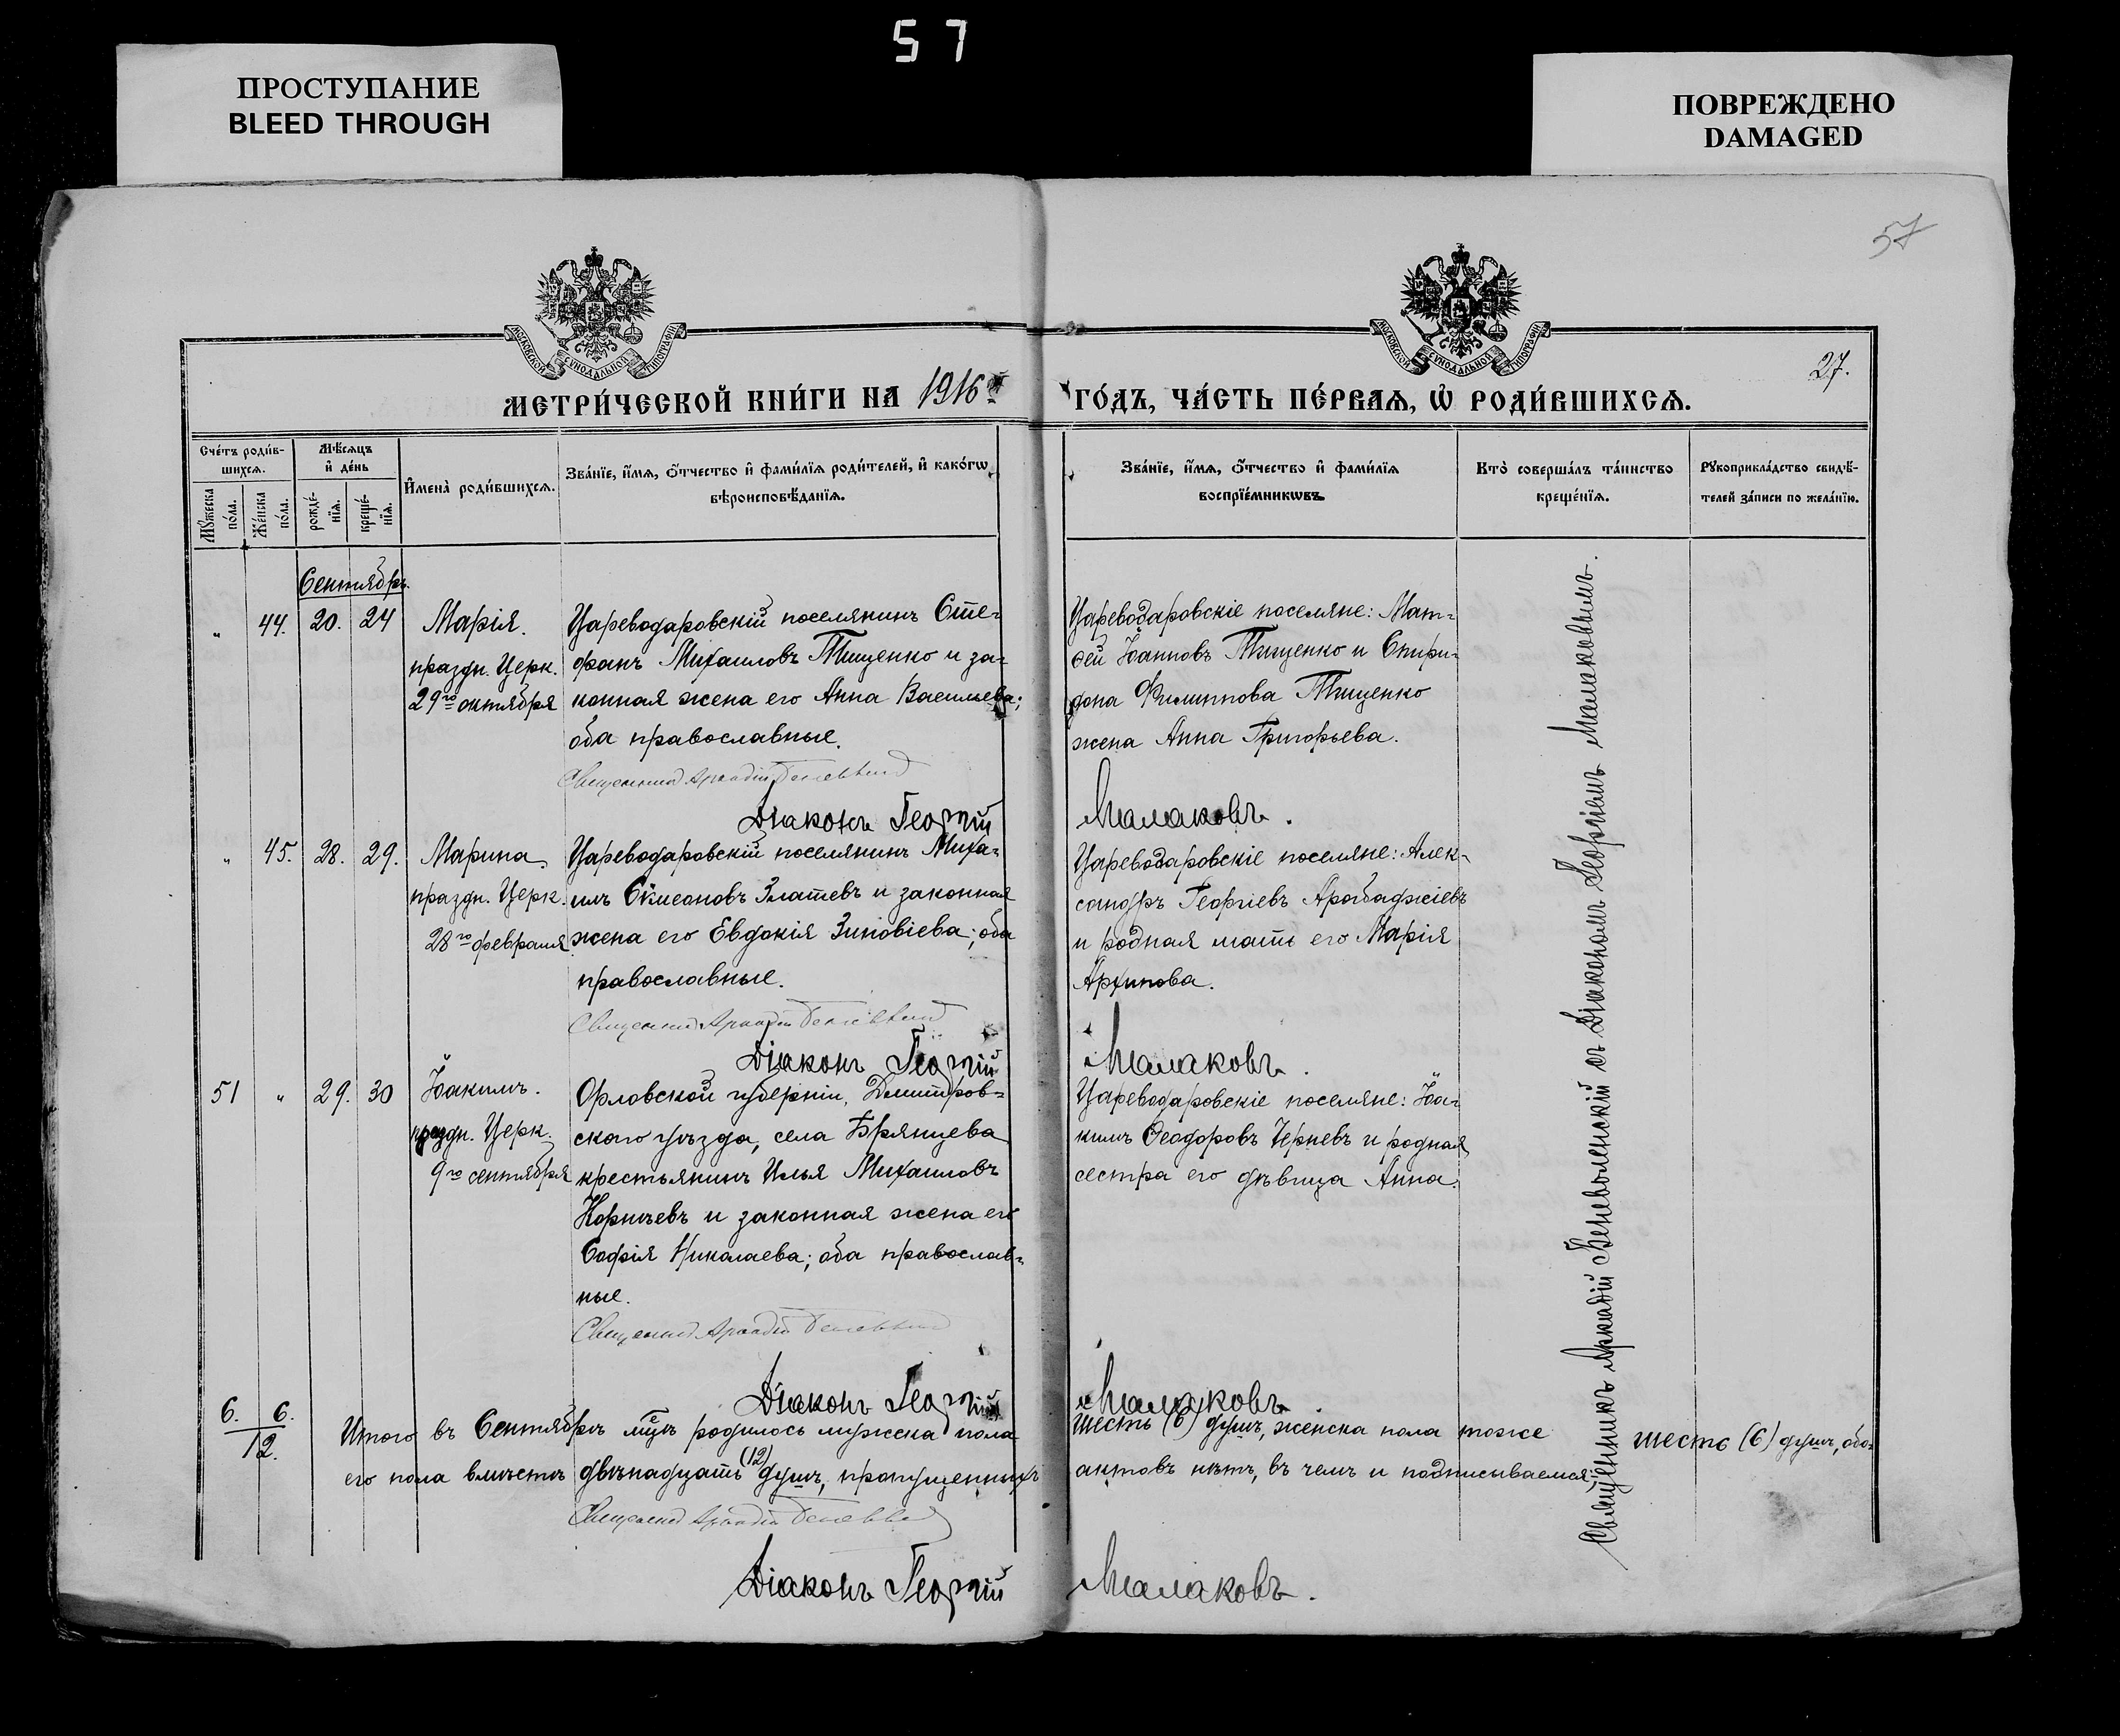 57
ПРОСТУПАНИЕ
BLEED THROUGH
ПОВРЕЖДЕНО
DAMAGED
57
МОСКОВСКОЙ СѴНОДАЛЬНОЙ ТИПОГРАФІИ
МОСКОВСКОЙ СѴНОДАЛЬНОЙ ТИПОГРАФІИ
27.
МЕТРИ́ЧЕСКОЙ КНИ́ГИ НА 1916й
ГО́ДЪ, ЧА́СТЬ ПЕ́РВАѦ, Ѡ҆ РОДИ́ВШИХСѦ.
Сче́тъ роди́в-
шихсѧ.
Мѣ́сѧцъ
и҆ де́нь
Мꙋ́жеска
по́ла.
Же́нска
по́ла.
рожде́-
нїѧ.
креще́-
нїѧ.
И҆мена̀ роди́вшихсѧ.
Зва́нїе, и҆́мѧ, ѻ҆́тчество и҆ фами́лїѧ роди́телей, и҆ како́гѡ
вѣроисповѣ́данїѧ.
Зва́нїе, и҆́мѧ, ѻ҆́тчество и҆ фами́лїѧ
воспрїе́мникѡвъ.
Кто̀ соверша́лъ та́инство
креще́нїѧ.
Рꙋкоприкла́дство свидѣ́-
телей за́писи по жела́нїю.
Сентябрь.
" 44. 20. 24 Марія.
праздн. Церк.
29го октября
Цареводаровскій поселянинъ Сте-
фанъ Михаиловъ Тищенко и за-
конная жена его Анна Васильева;
оба православные.
Священникъ Аркадій
Діаконъ Георгій
Цареводаровскіе поселяне: Мат-
ѳей Іоанновъ Тищенко и Спири-
дона Филиппова Тищенко
жена Анна Григорьева.
Малаковъ.
" 45. 28. 29. Марина
праздн. Церк.
28го февраля
Цареводаровскій поселянинъ Миха-
илъ Сѵмеоновъ Златевъ и законная
жена его Евдокія Зиновіева; оба
православные.
Священникъ Аркадій
Діаконъ Георгій
Цареводаровскіе поселяне: Алек-
сандръ Георгіевъ Арабаджіевъ
и родная мать его Марія
Архипова.
Малаковъ.
51 " 29. 30 Іоакимъ.
праздн. Церк.
9го сентября
Орловской губерніи, Дмитров-
скаго уѣзда, села Брянцева
крестьянинъ Илья Михаиловъ
и законная жена его
Софія Николаева; оба православ-
ные.
Священникъ Аркадій
Діаконъ Георгій
Цареводаровскіе поселяне: Іоа-
кимъ Ѳеодоровъ Черневъ и родная
сестра его дѣвица Анна.
Малаковъ
Священникъ Аркадій Беневоленскій съ Діакономъ Георгіемъ Малаковымъ.
6. 6.
12.
Итого въ Сентябрѣ мцѣ родилось мужеска пола шесть (6) душъ, женска пола тоже шесть (6) душъ, обо-
его пола вмѣстѣ двѣнадцать (12) душъ, пропущенныхъ актовъ нѣтъ, въ чемъ и подписываемся:
Священникъ Аркадій
Діаконъ Георгій Малаковъ.